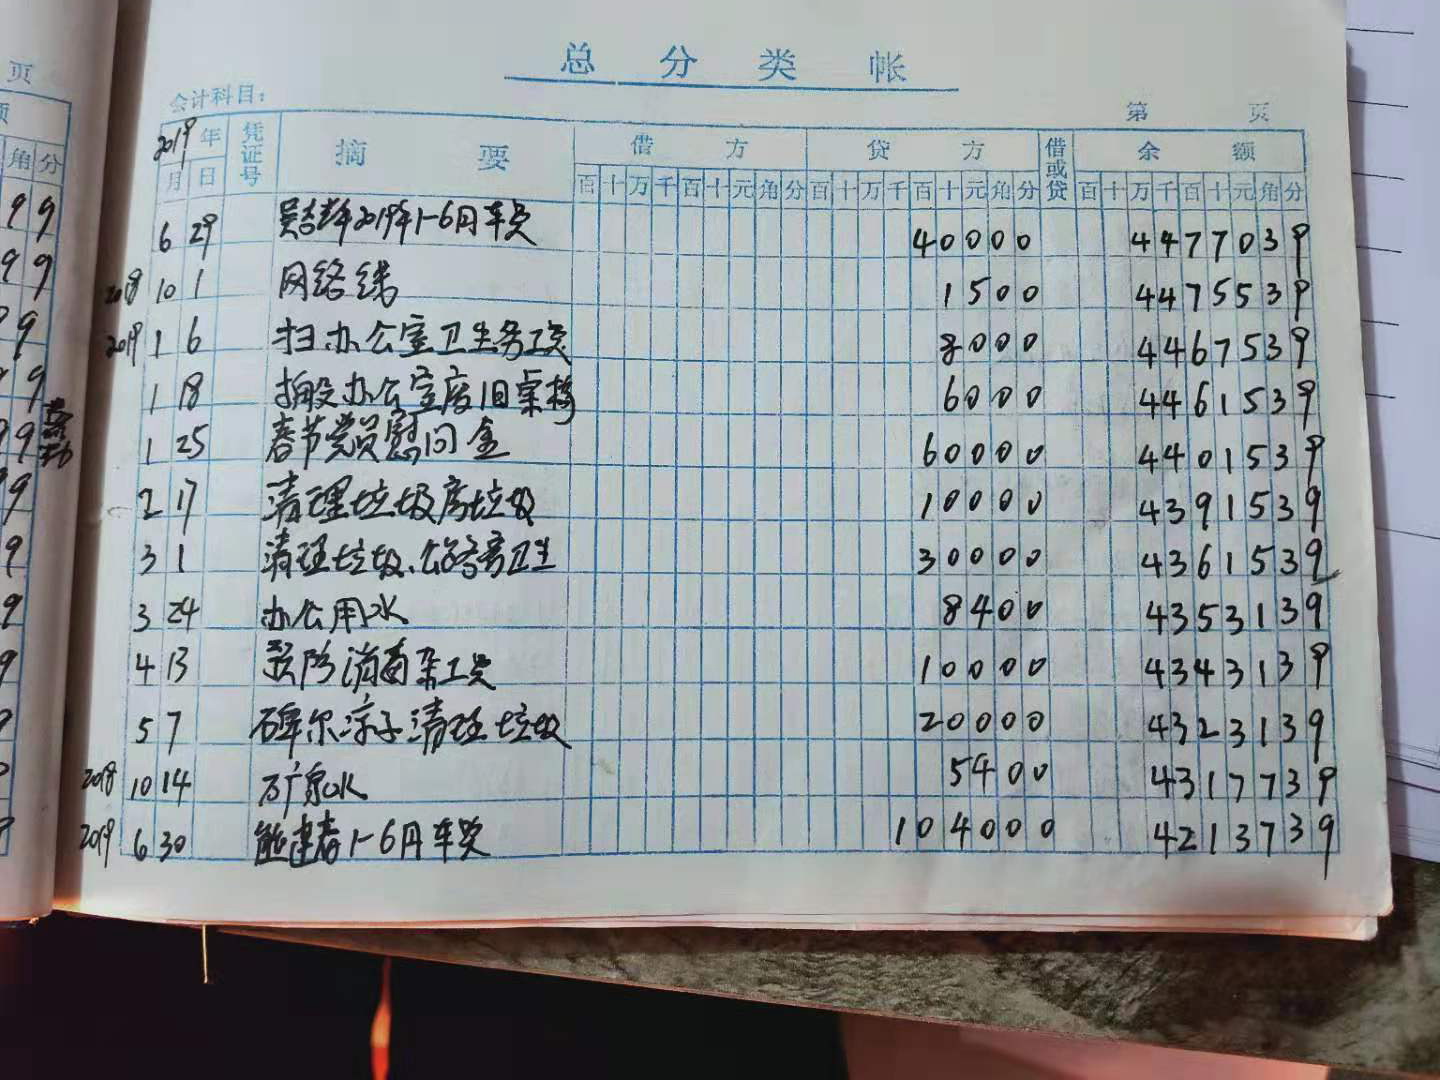 总分类帐
会计科目：
第 页
2019年 凭证号 摘要 借方 贷方 借或贷 余额
月 日 百十万千百十元角分 百十万千百十元角分 百十万千百十元角分
6 29 2019年1-6月车费 40000 4477039
2018 10 1 网络线 1500 4475539
2019 1 6 扫办公室卫生务工费 8000 4467539
1 18 搬办公室废旧桌椅 6000 4461539
1 25 春节党员慰问金 60000 4401539
2 17 清理垃圾房垃圾 10000 4391539
3 1 清理垃圾、公路旁卫生 30000 4361539
3 24 办公用水 8400 4353139
4 13 消毒杂工费 10000 4343139
5 7 清理垃圾 20000 4323139
2018 10 14 矿泉水 5400 4317739
2019 6 30 熊建春1-6月车费 104000 4213739
页
角分
99